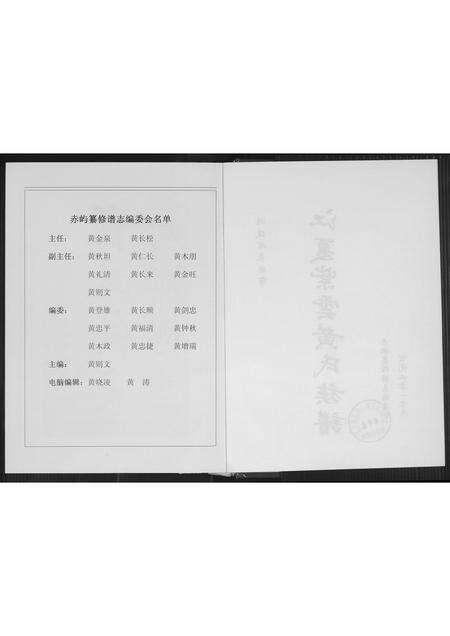 赤屿纂修谱志编委会名单
主任： 黄金泉 黄长松
副主任： 黄秋坦 黄仁长 黄木朋
黄礼清 黄长来 黄金旺
黄则文
编委： 黄登雄 黄长顺 黄剑忠
黄忠平 黄福清 黄钟秋
黄木政 黄忠捷 黄增瑞
主编： 黄则文
电脑编辑： 黄晓凌 黄 涛
江夏紫雲黄氏族譜